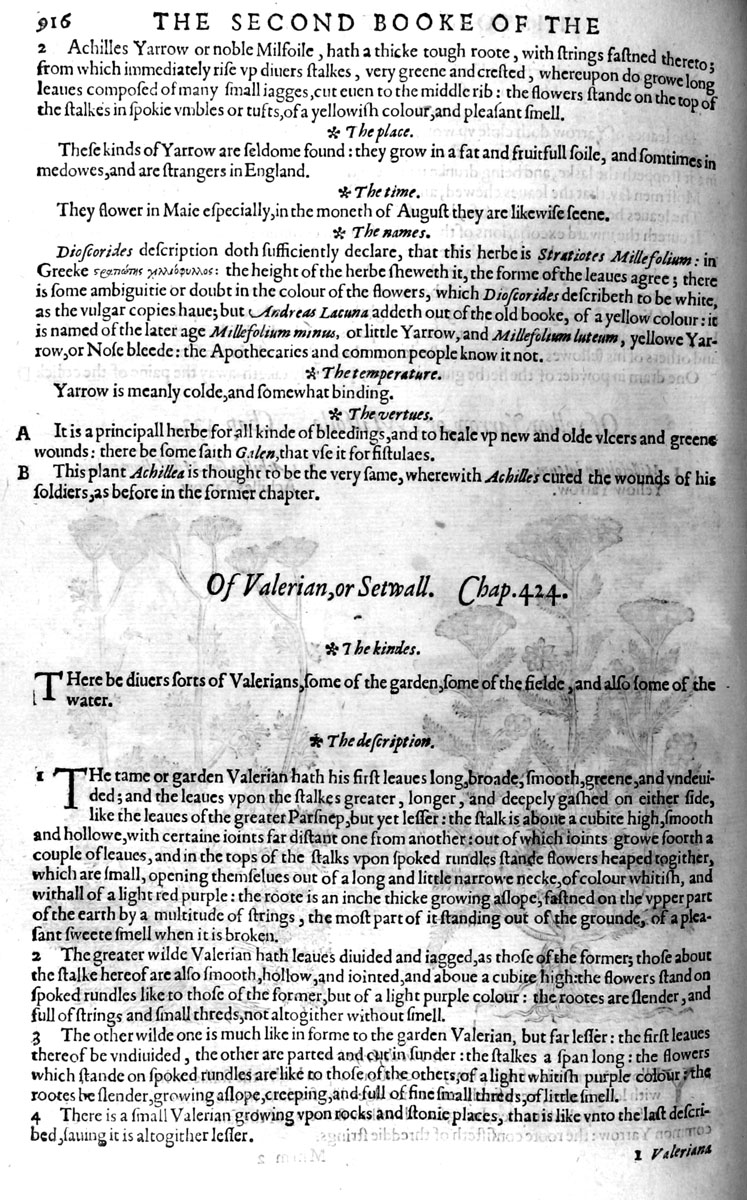 916 THE SECOND BOOKE OF THE
2 Achilles Yarrow or noble Milfoile, hath a thicke tough roote, with ſtrings faſtned thereto;
from which immediately riſe vp diuers ſtalkes, very greene and creſted, whereupon do growe long
leaues compoſed of many ſmall iagges, cut euen to the middle rib: the flowers ſtande on the top of
the ſtalkes in ſpokie vmbles or tufts, of a yellowiſh colour, and pleaſant ſmell.
✻ The place.
Theſe kinds of Yarrow are ſeldome found: they grow in a fat and fruitfull ſoile, and ſomtimes in
medowes, and are ſtrangers in England.
✻ The time.
They flower in Maie eſpecially, in the moneth of Auguſt they are likewiſe ſeene.
✻ The names.
Dioſcorides deſcription doth ſufficiently declare, that this herbe is Stratiotes Millefolium: in
Greeke the height of the herbe ſheweth it, the forme of the leaues agree; there
is ſome ambiguitie or doubt in the colour of the flowers, which Dioſcorides deſcribeth to be white,
as the vulgar copies haue; but Andreas Lacuna addeth out of the old booke, of a yellow colour: it
is named of the later age Millefolium minus, or little Yarrow, and Millefolium luteum, yellowe Yar-
row, or Noſe bleede: the Apothecaries and common people know it not.
✻ The temperature.
Yarrow is meanly colde, and ſomewhat binding.
✻ The vertues.
A It is a principall herbe for all kinde of bleedings, and to heale vp new and olde vlcers and greene
wounds: there be ſome ſaith Galen, that vſe it for fiſtulaes.
B This plant Achillea is thought to be the very ſame, wherewith Achilles cured the wounds of his
ſoldiers, as before in the former chapter.
Of Valerian, or Setwall. Chap. 424.
✻ The kindes.
THere be diuers ſorts of Valerians, ſome of the garden, ſome of the fielde, and alſo ſome of the
water.
✻ The deſcription.
1 THe tame or garden Valerian hath his firſt leaues long, broade, ſmooth, greene, and vndeui-
ded; and the leaues vpon the ſtalkes greater, longer, and deepely gaſhed on either ſide,
like the leaues of the greater Parſnep, but yet leſſer: the ſtalk is aboue a cubite high, ſmooth
and hollowe, with certaine ioints far diſtant one from another: out of which ioints growe foorth a
couple of leaues, and in the tops of the ſtalks vpon ſpoked rundles ſtande flowers heaped togither,
which are ſmall, opening themſelues out of a long and little narrowe necke, of colour whitiſh, and
withall of a light red purple: the roote is an inche thicke growing aſlope, faſtned on the vpper part
of the earth by a multitude of ſtrings, the moſt part of it ſtanding out of the grounde, of a plea-
ſant ſweete ſmell when it is broken.
2 The greater wilde Valerian hath leaues diuided and iagged, as thoſe of the former; thoſe about
the ſtalke hereof are alſo ſmooth, hollow, and iointed, and aboue a cubite high: the flowers ſtand on
ſpoked rundles like to thoſe of the former, but of a light purple colour: the rootes are ſlender, and
full of ſtrings and ſmall threds, not altogither without ſmell.
3 The other wilde one is much like in forme to the garden Valerian, but far leſſer: the firſt leaues
thereof be vndiuided, the other are parted and cut in ſunder: the ſtalkes a ſpan long: the flowers
which ſtande on ſpoked rundles are like to thoſe of the others, of a light whitiſh purple colour: the
rootes be ſlender, growing aſlope, creeping, and full of fine ſmall threds, of little ſmell.
4 There is a ſmall Valerian growing vpon rocks and ſtonie places, that is like vnto the laſt deſcri-
bed, ſauing it is altogither leſſer.
1 Valeriana